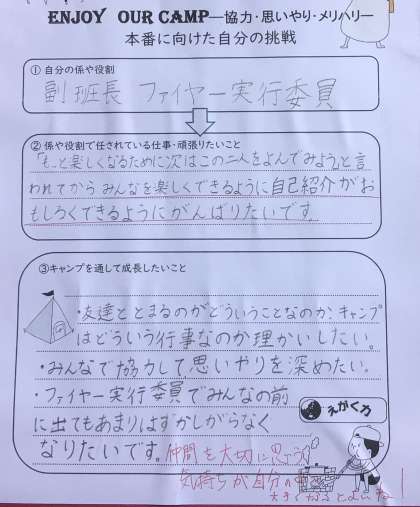 ENJOY OUR CAMP―協力・思いやり・メリハリ―
本番に向けた自分の挑戦
① 自分の係や役割
副班長 ファイヤー実行委員
② 係や役割で任されている仕事・頑張りたいこと
「もっと楽しくなるために次はこの二人をよんでみよう」と言
われてから みんなを楽しくできるように自己紹介がお
もしろくできるようにがんばりたいです。
③キャンプを通して成長したいこと
・友達ととまるのがどういうことなのか、キャンプ
はどういう行事なのか理かいしたい。
・みんなで協力して思いやりを深めたい。
・ファイヤー実行委員でみんなの前
に出てもあまりはずかしがらなく
なりたいです。
えがく力
仲間を大切に思う
気持ちが自分の
大きくなるとよいね!